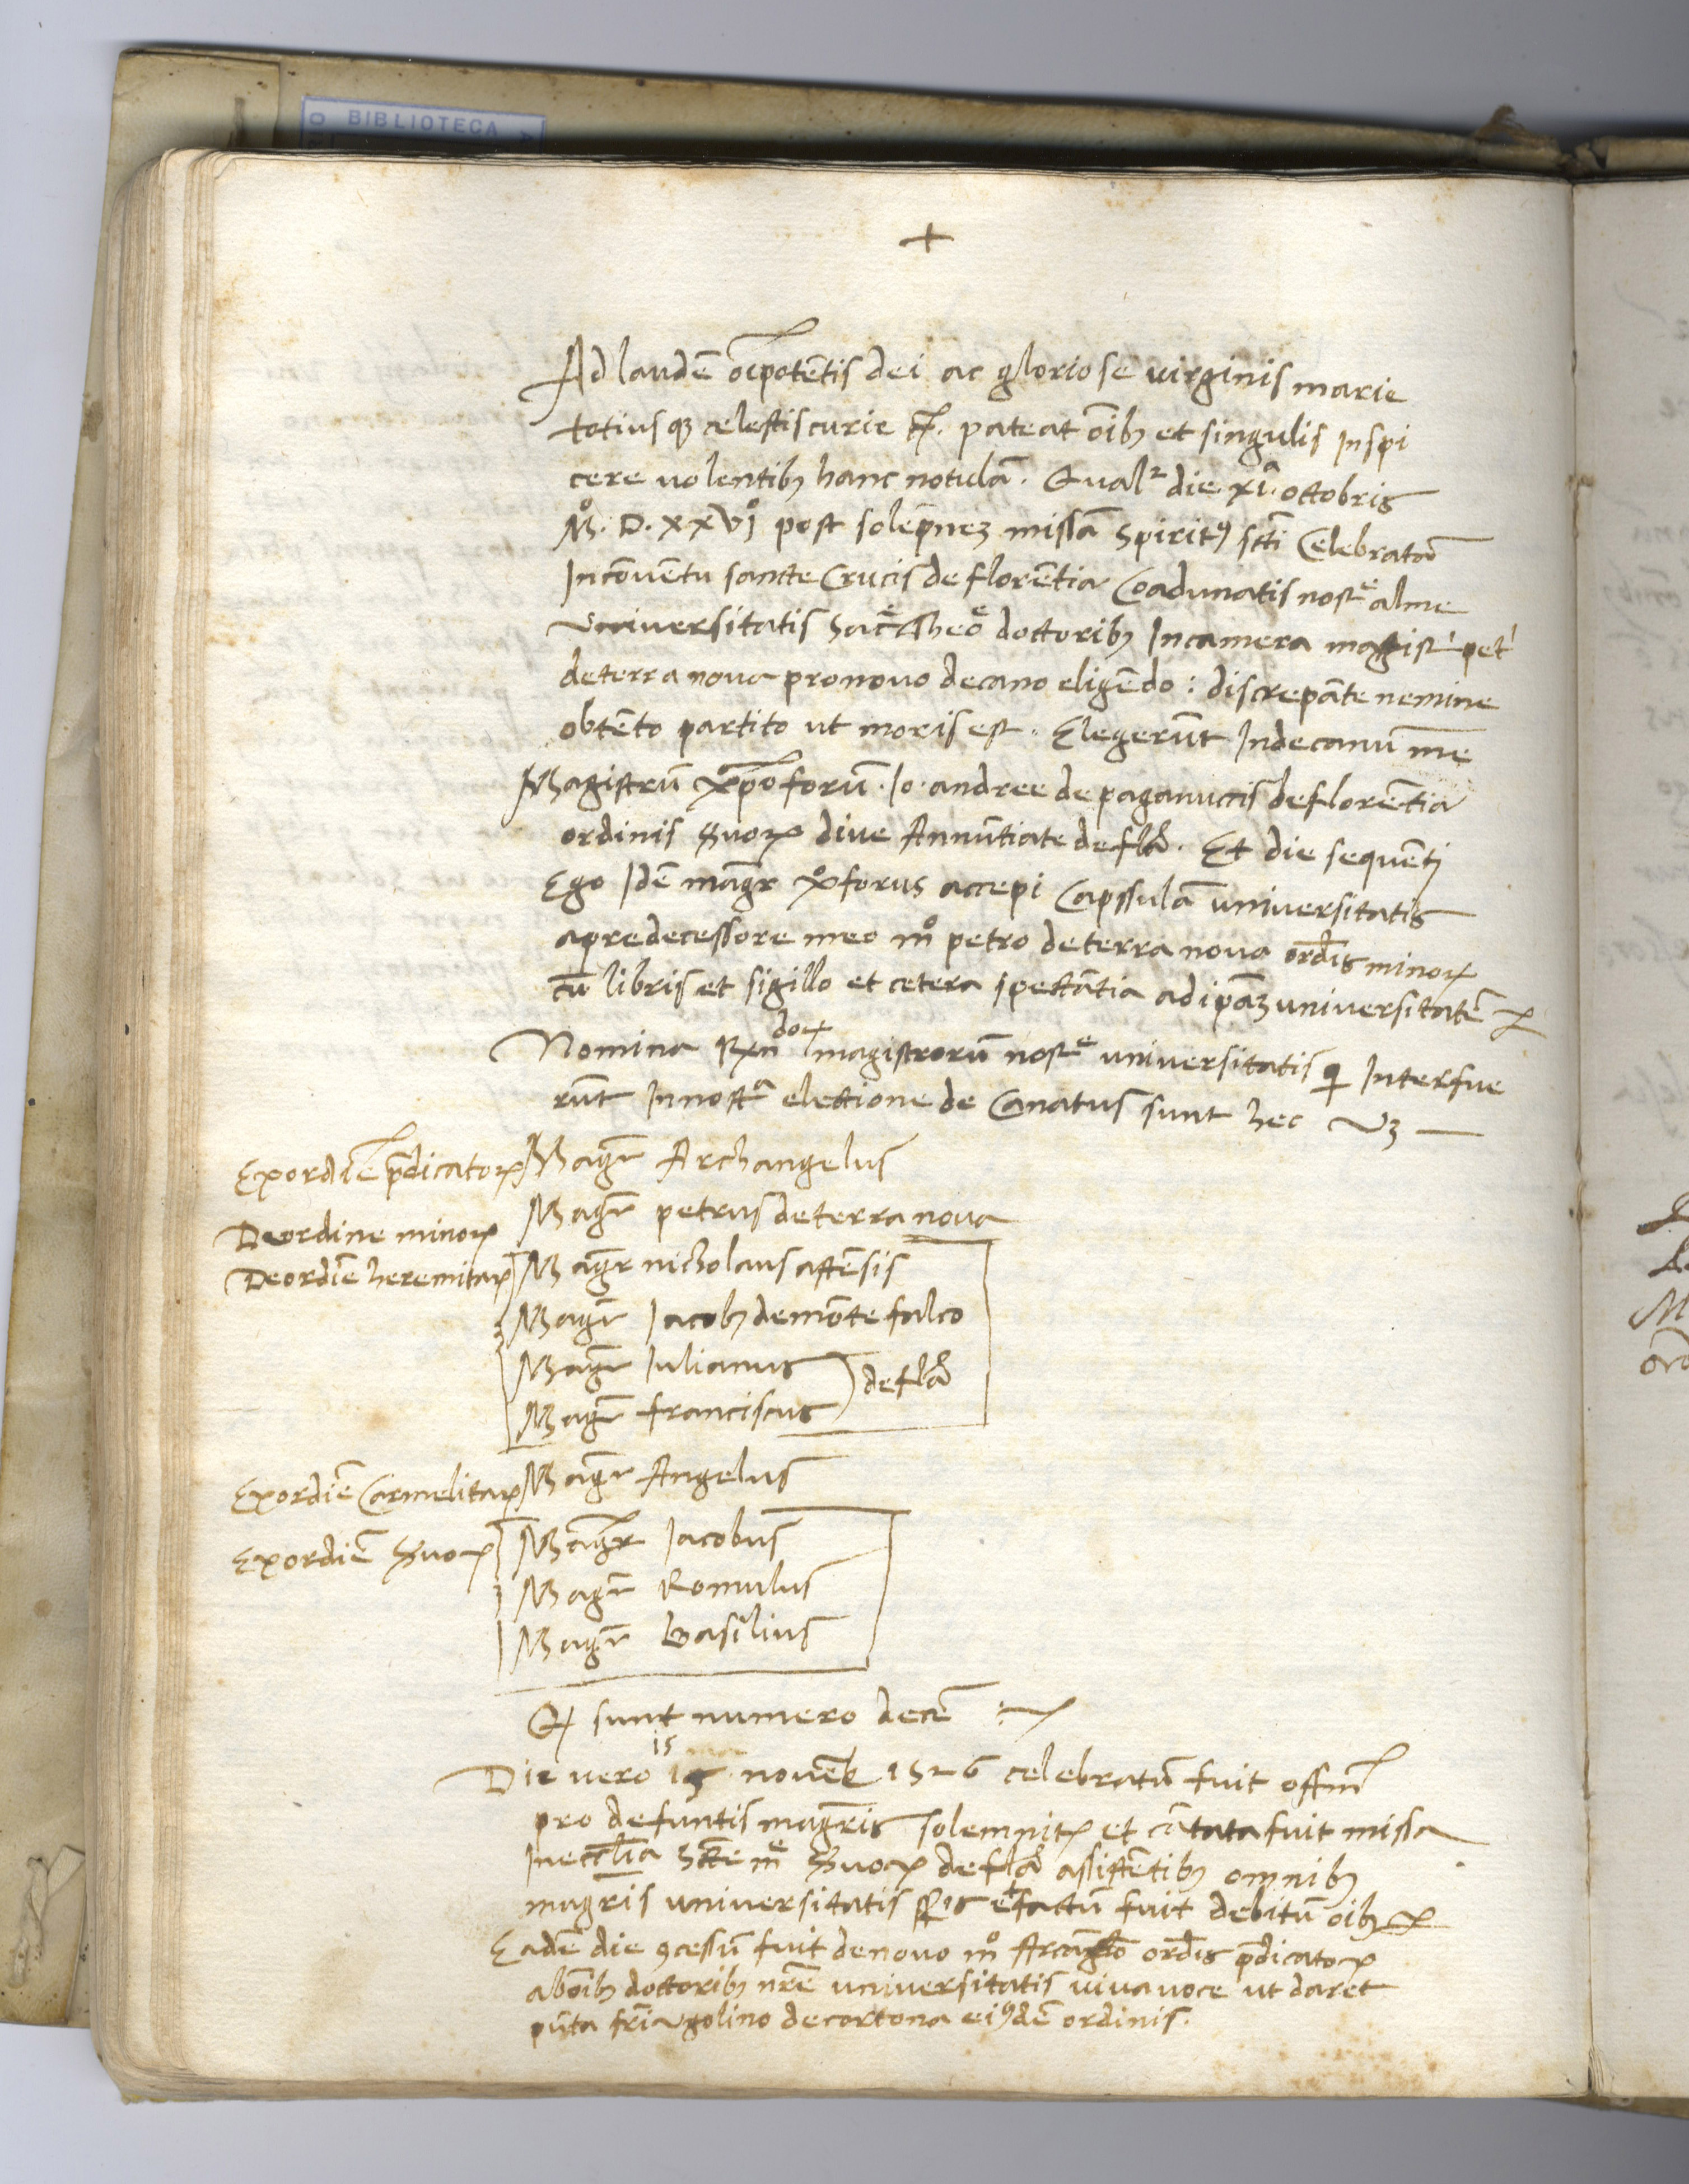 BIBLIOTECA
+
Ad laudē oīpotētis dei ac gloriose uirginis marie
totiusqȝ celestis curie &c̄. pateat oībȝ et singulis Inspi
cere uolentibȝ hanc notulā. Qualr die xiᵃ. ottobris
Mº. D. xxviº post solēpnez missā Spiritꝰ scti Celebratā
In cōuentu sancte Crucis de florētia Coadunatis nostᵉ alme
Vniuersitatis Sacᵉ theoᵉ dottoribȝ In camera magistⁱ petⁱ
de terra noua pro nouo decano eligēdo: discrepāte nemine
obtēto partito ut moris est. Elegerūt In decanū me
Magistrū xp̄oforū. Io. andree de paganuccis de florētia
ordinis Seruoꝝ diue Annūtiate de flā. Et die sequēti
Ego Idē mag̅r xºforus accepi Capsulā uniuersitatis
a predecessore meo mº petro de terra noua ord̄is minoꝝ
cū libris et sigillo et cetera spectātia ad ipāz uniuersitatē
Nomina Rxndoꝝ magistrorū nostᵉ uniuersitatis q Interfue
rūt In nostᵃ electione decanatus sunt hec vȝ
Ex ordīe p̄dicatoꝝ Mag̅r Archangelus
De ordine minoꝝ Mag̅r petrus de terra noua
De ordīe heremitaꝝ Mag̅r nicholaus astēsis
Mag̅r Iacobȝ de mōte falco
Mag̅r Iulianus
de flā
Mag̅r franciscus
Ex ordīe Carmelitaꝝ Mag̅r Angelus
Ex ordīe Seruoꝝ Mag̅r Iacobus
Mag̅r Romulus
Mag̅r Basilius
Qi sunt numero decē
15
Die uero nouēb 1526 celebratū fuit offm̄
pro defuntis magr̄is solemnitꝝ et cātata fuit missa
In eccl̄ia Scte mᵉ Seruoꝝ de flā assistētibȝ omnibȝ
magris uniuersitatis et factū fuit debitū oibȝ
Eadē die ꝯcessū fuit de nouo mº Arcāgelo ord̄is p̄dicatoꝝ
ab oībȝ dottoribȝ nr̄e uniuersitatis uiua uoce ut daret
pūta fr̄i Vgolino de cortona eiꝰdē ordinis.